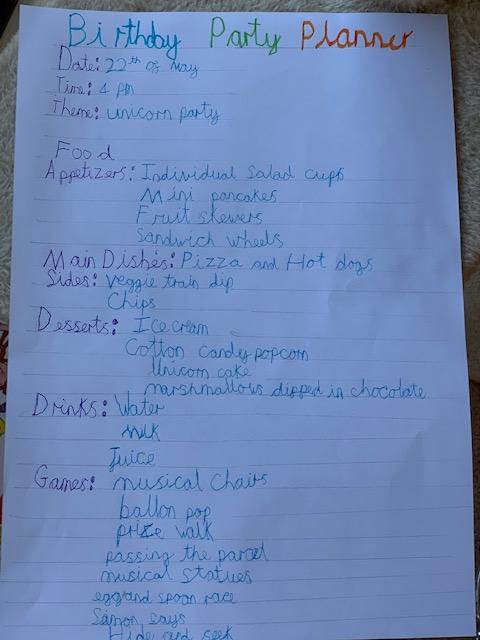 Birthday Party Planner
Date: 22th of May
Time: 4 pm
Theme: unicorn party
Food
Appetizers: Individual Salad cups
Mini pancakes
Fruit skewers
Sandwich wheels
Main Dishes: Pizza and Hot dogs
Sides: veggie train dip
Chips
Desserts: Ice cream
Cotton candy popcorn
Unicorn cake
marshmallows dipped in chocolate
Drinks: Water
Milk
Juice
Games: musical chairs
ballon pop
prize walk
passing the parcel
musical statues
egg and spoon race
Simon says
Hide and seek